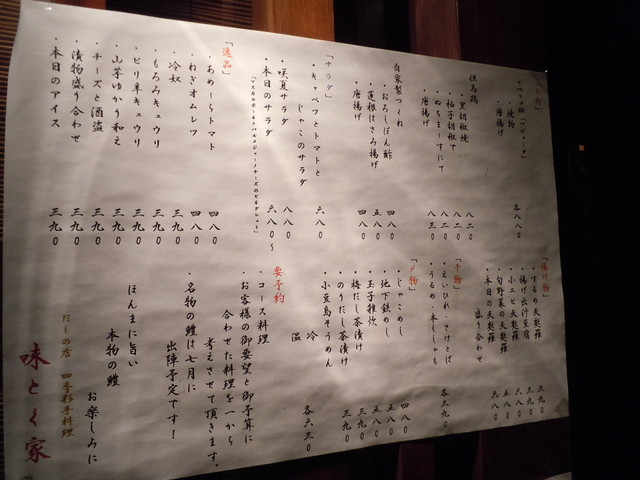 ・焼物
・唐揚げ
各八八〇
但馬鶏
・黒胡椒焼
八二〇
・柚子胡椒で
八二〇
・ぬちまーすにて
八二〇
・唐揚げ
八三〇
自家製つくね
・おろしぽん酢
四八〇
・蓮根はさみ揚げ
五八〇
・唐揚げ
四八〇
「サラダ」
・キャベツとトマトと
じゃこのサラダ
六八〇
・咲夏サラダ
八八〇
・本日のサラダ
六八〇〜
「逸品」
・あめーらトマト
四八〇
・ねぎオムレツ
四八〇
・冷奴
三九〇
・もろみキュウリ
三九〇
・ピリ辛キュウリ
三九〇
・山芋ゆかり和え
三九〇
・チーズと酒盗
三九〇
・漬物盛り合わせ
三九〇
・本日のアイス
三九〇
「揚げ物」
・するめ天麩羅
三九〇
・揚げ出汁豆腐
三九〇
・小エビ天麩羅
六八〇
・旬野菜の天麩羅
五八〇
・本日の天麩羅
盛り合わせ
六八〇
「干物」
・えいひれ・さけとば
・うるめ・本ししゃも
各三九〇
「〆物」
・じゃこめし
四八〇
・地下鉄めし
五八〇
・玉子雑炊
五八〇
・梅だし茶漬け
三九〇
・のりだし茶漬け
三九〇
・小豆島そうめん
冷
温
各六三〇
要予約
・コース料理
・お客様の御要望と御予算に
合わせた料理を一から
考えさせて頂きます。
・名物の鱧は七月に
出陣予定です！
ほんまに旨い
本物の鱧
お楽しみに
だしの店 四季彩手料理
味とく家